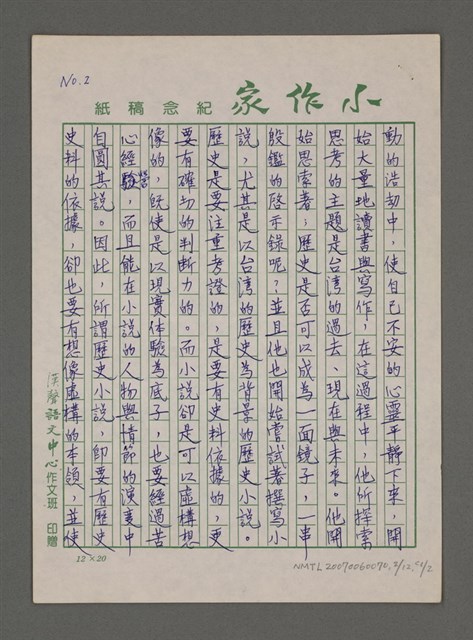 No.2
小作家
紀念稿紙
動的浩劫中，使自己不安的心靈平靜下來，開
始大量地讀書與寫作，在這過程中，他所探索
思考的主題是台灣的過去、現在與未來。他開
始思索著，歷史是否可以成為一面鏡子，一串
殷鑑的啟示錄呢？並且他也開始嘗試著撰寫小
說，尤其是以台灣的歷史為背景的歷史小說。
歷史是要注重考證的，是要有史料依據的，更
要有確切的判斷力的。而小說卻是可以虛構想
像的，既使是以現實体驗為底子，也要經過苦
心經營，而且能在小說的人物與情節的演變中
自圓其說。因此，所謂歷史小說，即要有歷史
史料的依據，卻也要有想像虛構的本領，並使
漢聲語文中心作文班 印贈
12×20
NMTL20070060070, 2/12,